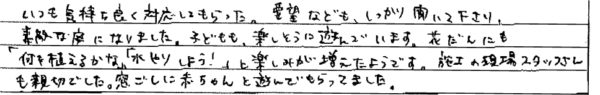 いつも気持ち良く対応してもらった。要望なども、しっかり聞いて下さり、
素敵な庭になりました。子どもも、楽しそうに遊んでいます。花だんにも
「何を植えるかな」「水やりしよう！」と楽しみが増えたようです。施工の現場スタッフさん
も親切でした。窓ごしに赤ちゃんと遊んでもらってました。